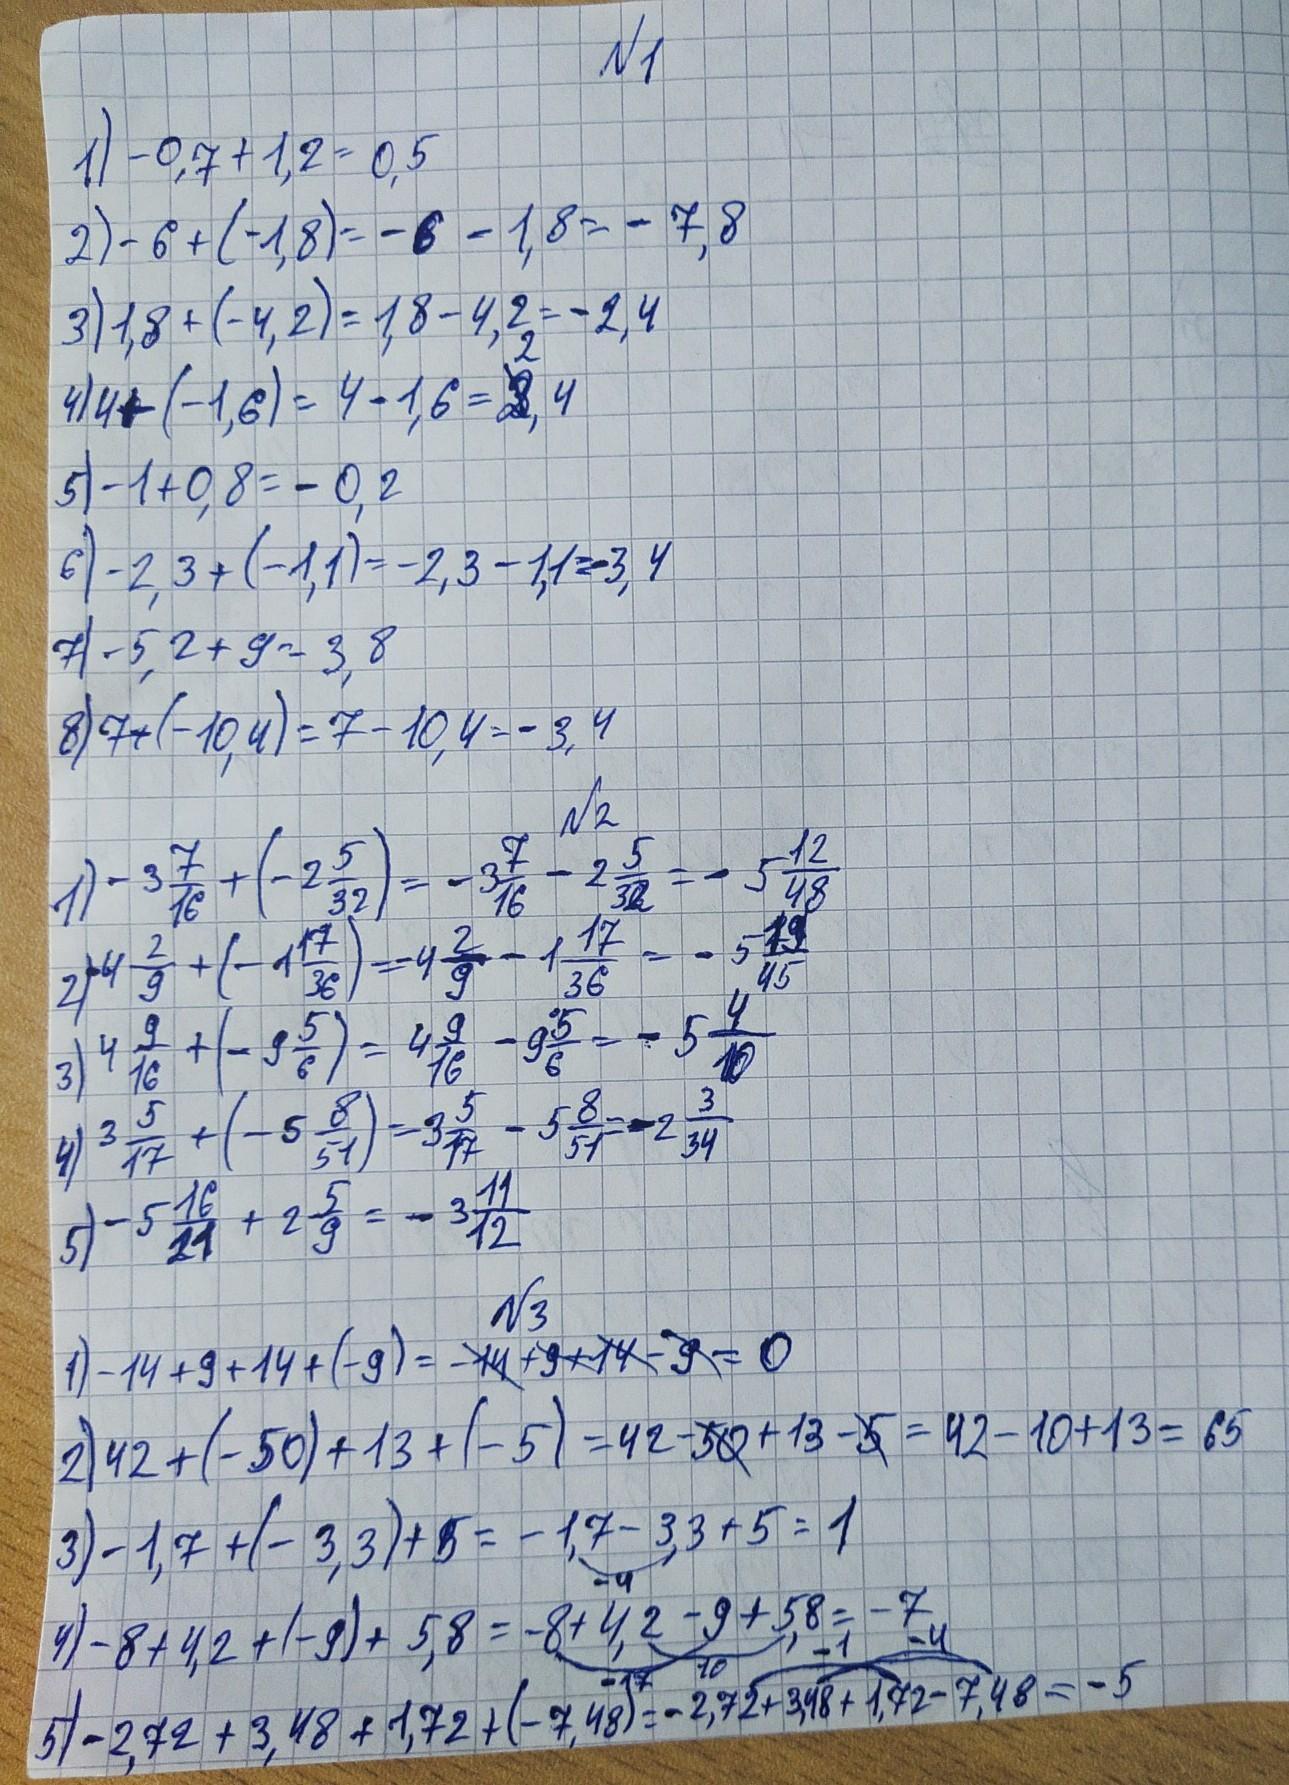 №1
1) -0,7+1,2= 0,5
2) -6+(-1,8)= -6 - 1,8= - 7,8
3) 1,8+(-4,2)= 1,8-4,2=-2,4
4) 4+(-1,6)= 4-1,6= 2,4
5) -1+0,8=- 0,2
6) -2,3+(-1,1)=-2,3-1,1=-3,4
7) -5,2+9= 3,8
8) 7+(-10,4)=7-10,4=-3,4
№2
1) -3 7/16 + (-2 5/32) = -3 7/16 - 2 5/32 = - 5 12/48
2) -4 2/9 + (-1 17/36) = -4 2/9 - 1 17/36 = - 5 19/45
3) 4 9/16 + (-9 5/6) = 4 9/16 - 9 5/6 = - 5 4/10
4) 3 5/17 + (-5 8/51) = 3 5/17 - 5 8/51 = -2 3/34
5) -5 16/21 + 2 5/9 = - 3 11/12
№3
1) -14+9+14+(-9)= -14+9+14-9= 0
2) 42+(-50)+13+(-5)=42-50+13-5= 42-10+13= 65
3) -1,7+(-3,3)+5= -1,7-3,3+5=1
-4
4) -8+4,2+(-9)+5,8= -8+4,2-9+5,8= -7
-17 10 -1 -4
5) -2,72+3,48+1,72+(-7,48)=-2,72+3,48+1,72-7,48=-5